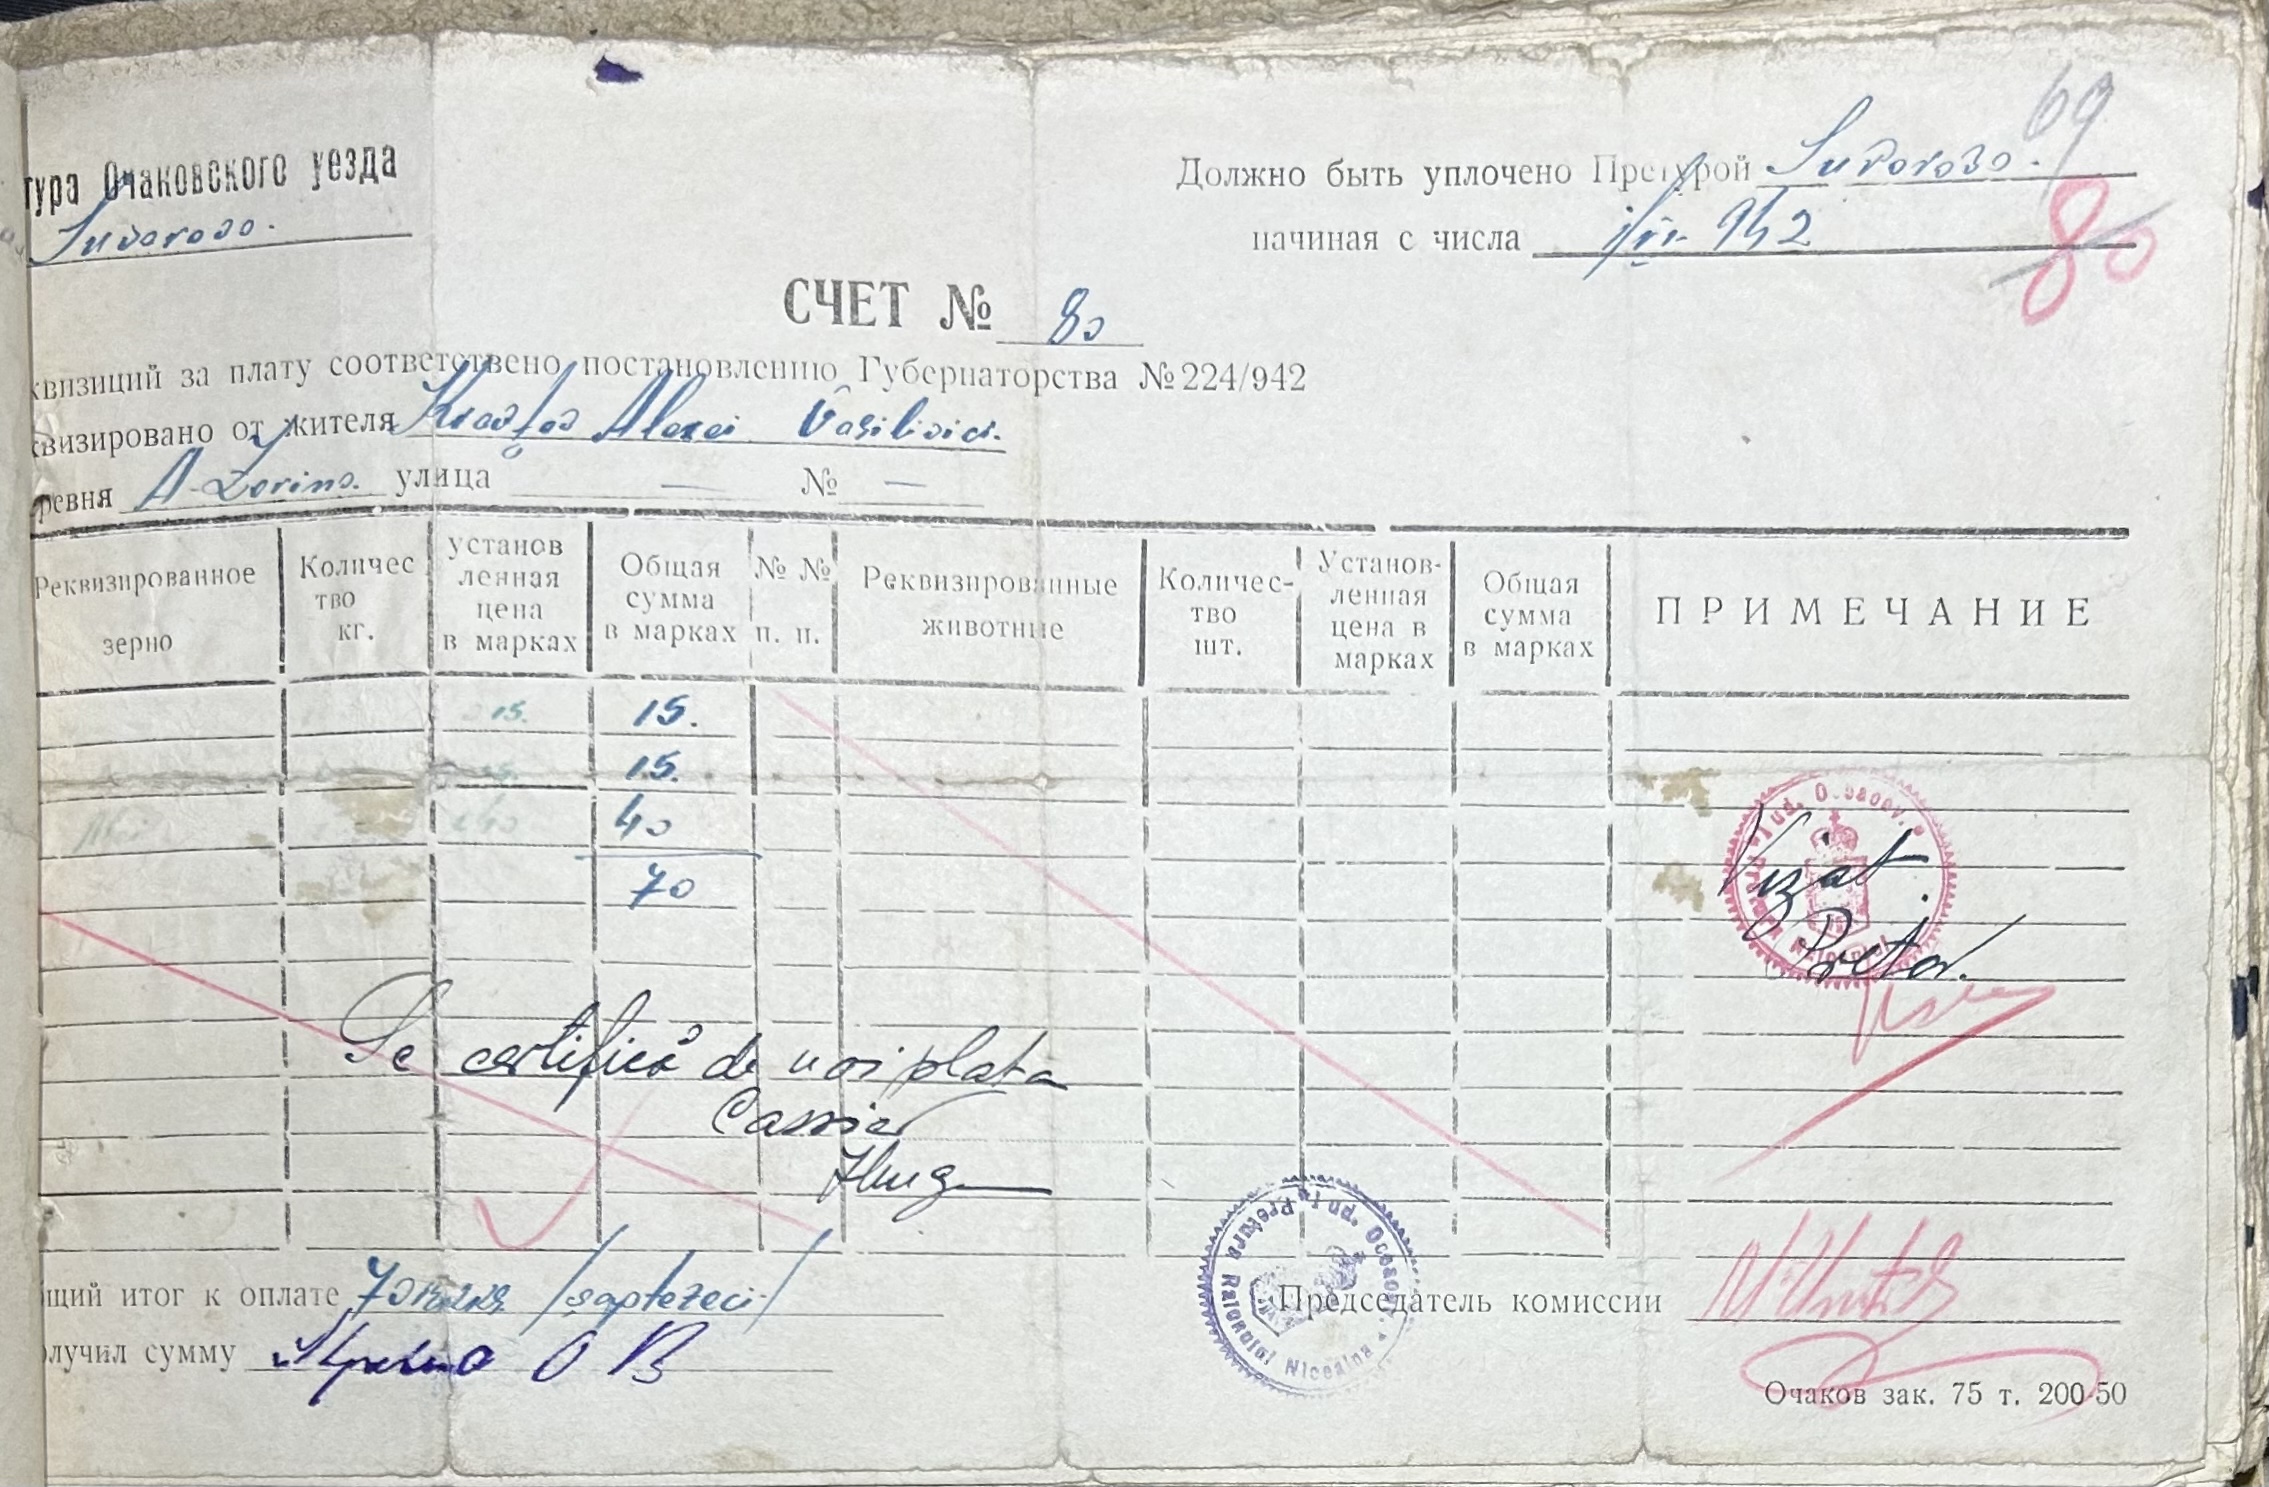 69
тура Очаковского уезда
Suvorovo.
Должно быть уплочено Претурой Suvorovo.
начиная с числа 942
80
СЧЕТ № 80
квизиций за плату соответствено постановлению Губернаторства № 224/942
квизировано от жителя Alexei Vasilivici.
ревня улица — № —
Реквизированное зерно
Количес тво кг.
установ ленная цена в марках
Общая сумма в марках
№ № п. п.
Реквизированные животные
Количес- тво шт.
Установ- ленная цена в марках
Общая сумма в марках
ПРИМЕЧАНИЕ
15. 15.
15.
40 40
70
Vizat
Pretor.
Se certifică de noi plata
Cassier
щий итог к оплате 70 /șaptezeci/
лучил сумму О В
Pretura Raionului Jud. Oceacov
Председатель комиссии
Очаков зак. 75 т. 200-50